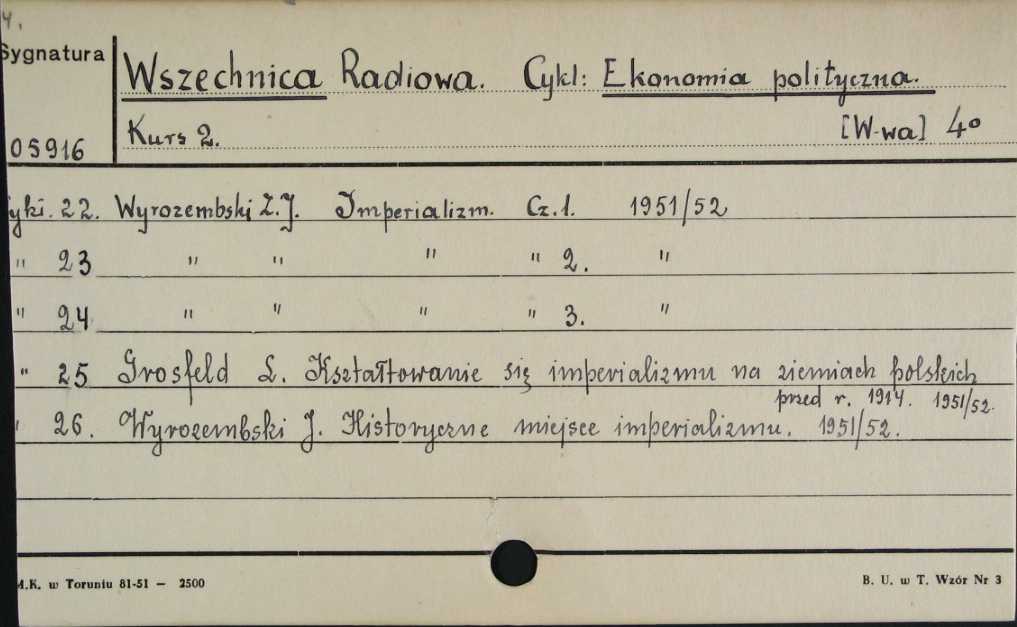 4.
Sygnatura
Wszechnica Radiowa. Cykl: Ekonomia polityczna.
05916
Kurs 2. [W-wa] 4°
yki. 22. Wyrozembski Z.J. Imperializm. Cz. 1. 1951/52
" 23 " " " " 2. "
" 24 " " " " 3. "
" 25 Grosfeld L. Kształtowanie się imperializmu na ziemiach polskich
przed r. 1914. 1951/52.
" 26. Wyrozembski J. Historyczne miejsce imperializmu. 1951/52.
M.K. w Toruniu 81-51 — 2500
B. U. w T. Wzór Nr 3